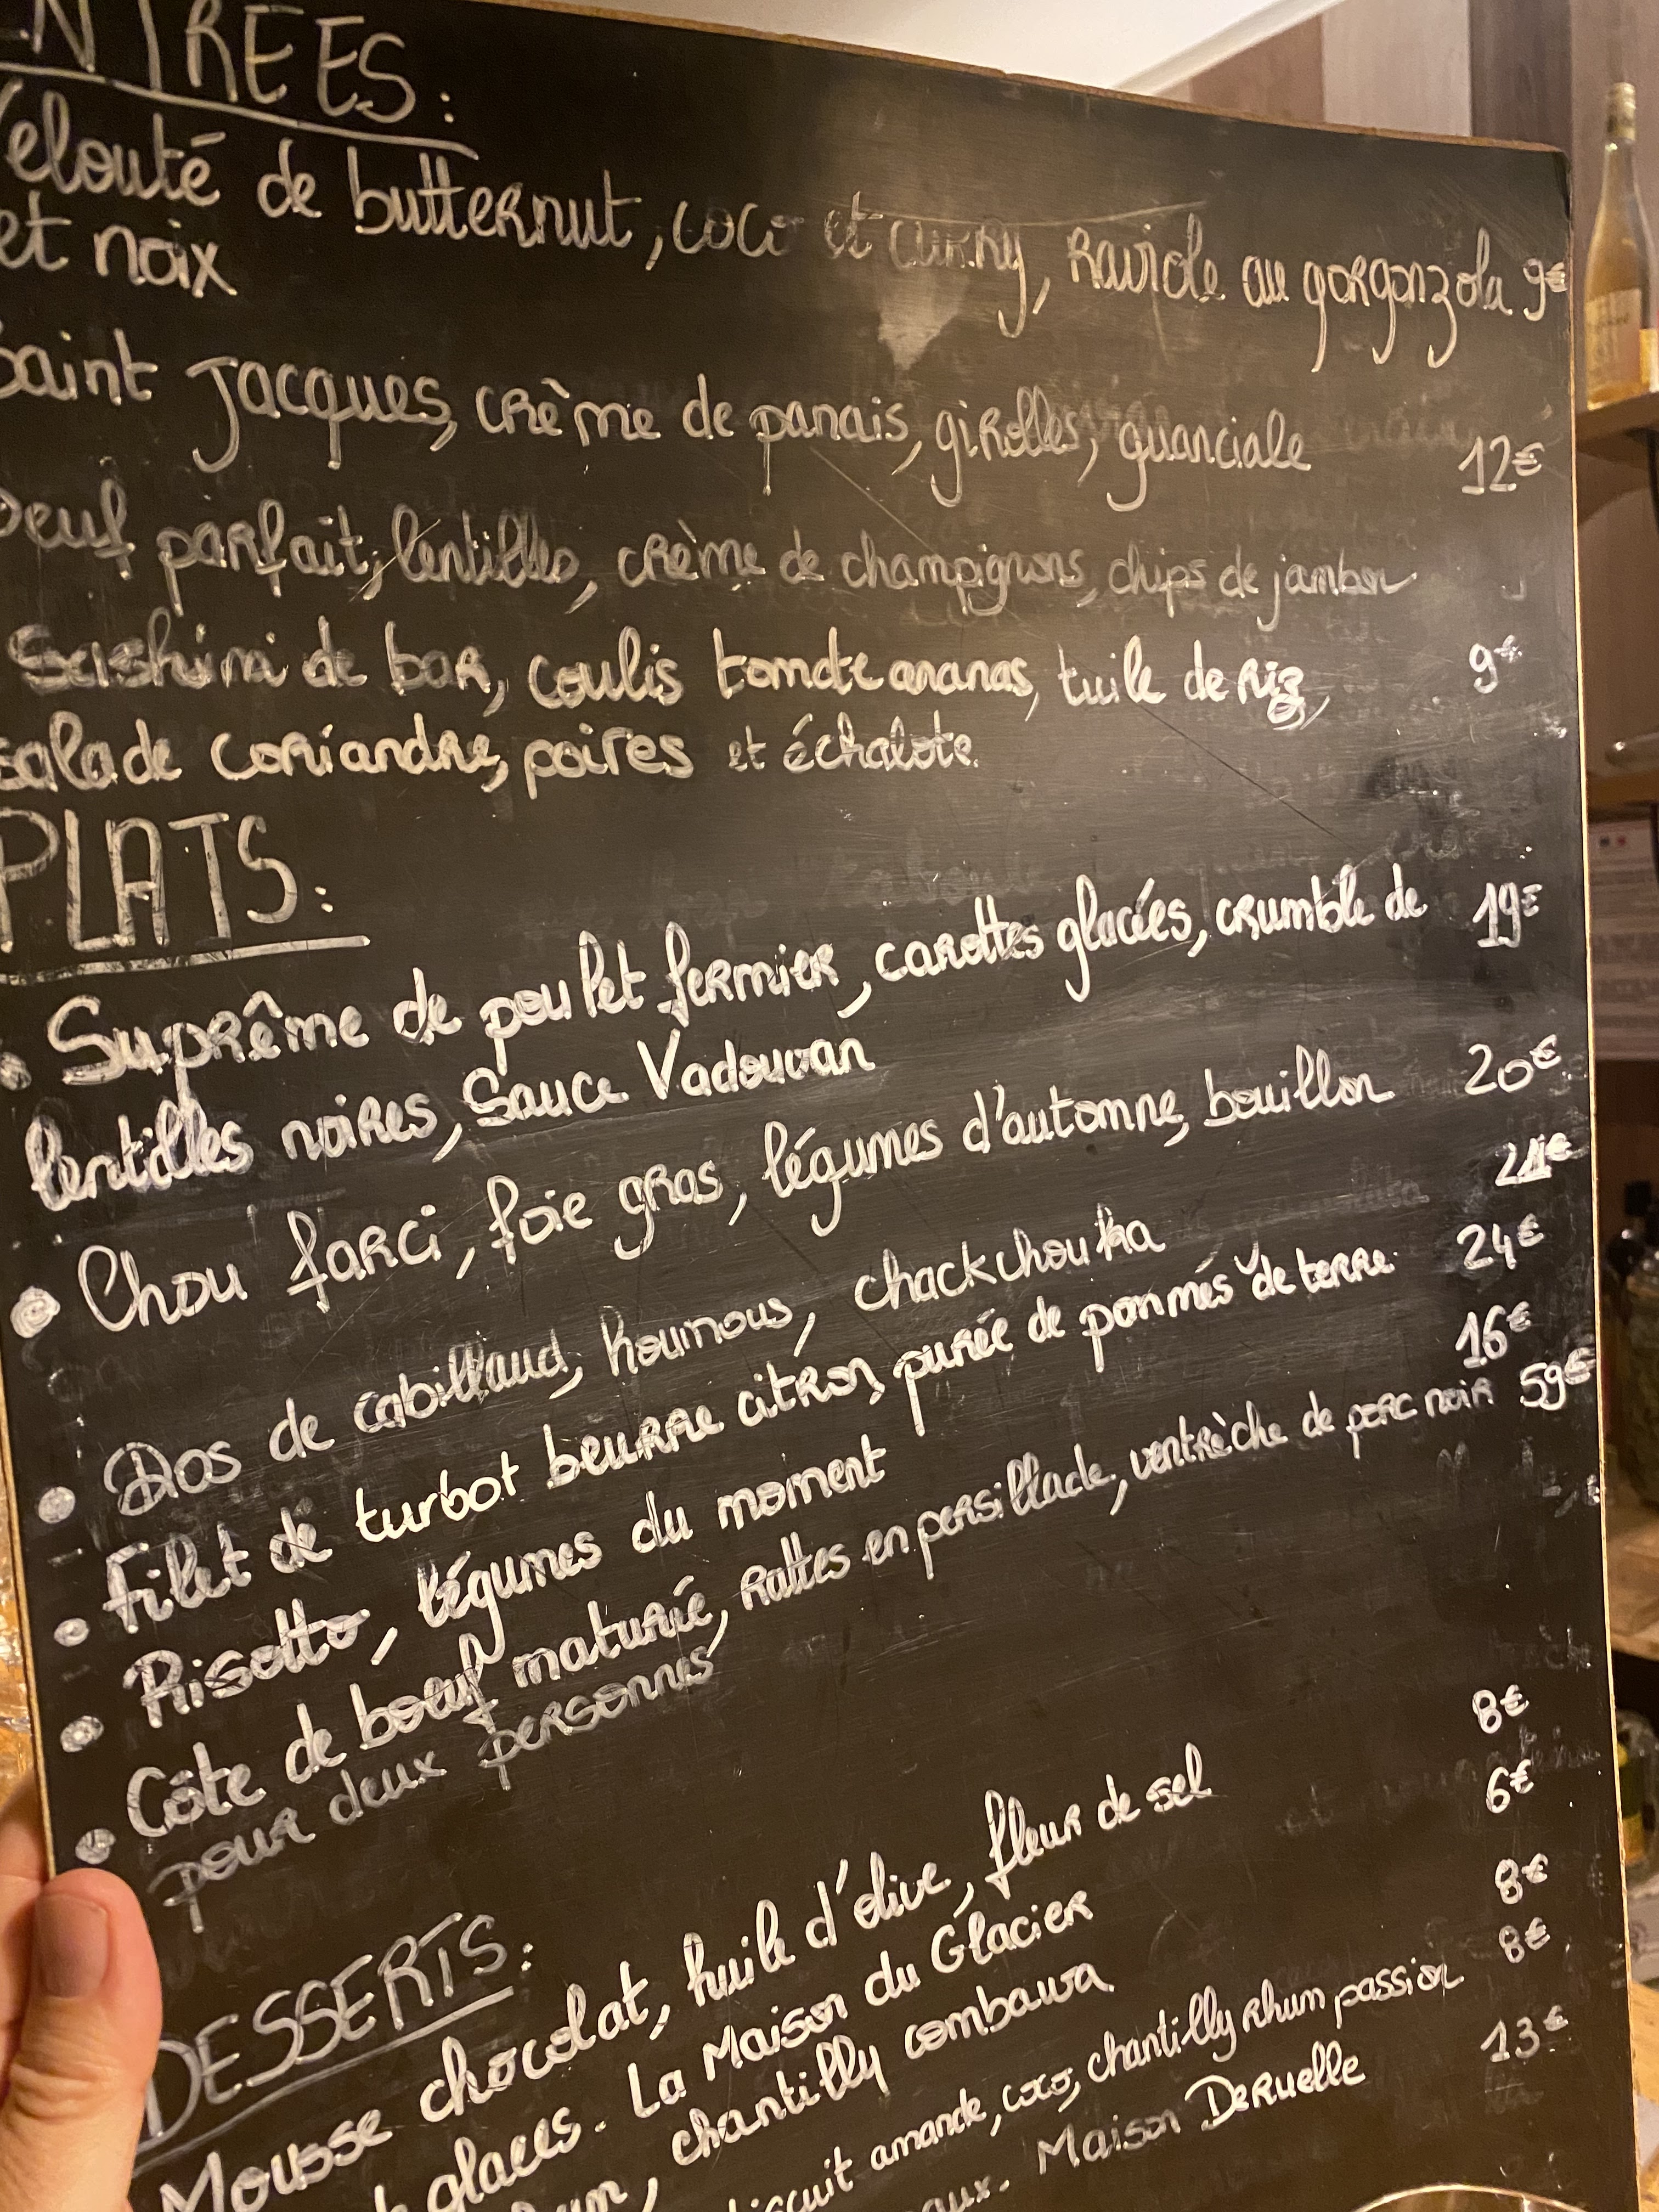 ENTREES:
Velouté de butternut, coco et curry, Raviole au gorgonzola 9€
et noix
Saint Jacques, crème de panais, girolles, guanciale 12€
Oeuf parfait, lentilles, crème de champignons, chips de jambon
Sashimi de bar, coulis tomate ananas, tuile de riz, 9€
salade coriandre, poires et échalote.
PLATS:
• Suprême de poulet fermier, carottes glacées, crumble de 19€
lentilles noires, Sauce Vadouvan
• Chou farci, foie gras, légumes d'automne, bouillon 20€
• Dos de cabillaud, houmous, chackchouka
• Filet de turbot beurre citron, purée de pommes de terre. 24€
• Risotto, légumes du moment 16€
• Côte de boeuf maturée, rattes en persillade, ventrèche de porc noir 59€
pour deux personnes
DESSERTS:
Mousse chocolat, huile d'olive, fleur de sel 8€
glaces. La Maison du Glacier 6€
, chantilly combawa 8€
biscuit amande, coco, chantilly Rhum passion 8€
Maison Deruelle 13€